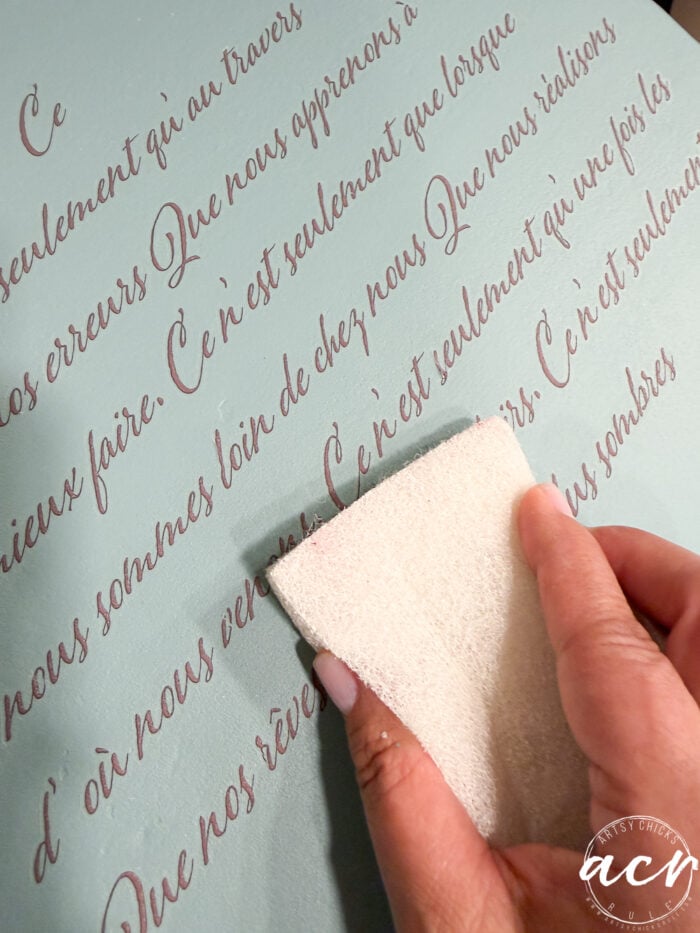 Ce
seulement qu'au travers
nos erreurs Que nous apprenons à
mieux faire. Ce n'est seulement que lorsque
nous sommes loin de chez nous Que nous réalisons
d'où nous venons Ce n'est seulement qu'une fois les
Que nos rêves Ce n'est seulement
sombres
ARTSY CHICKS
acr
RULE